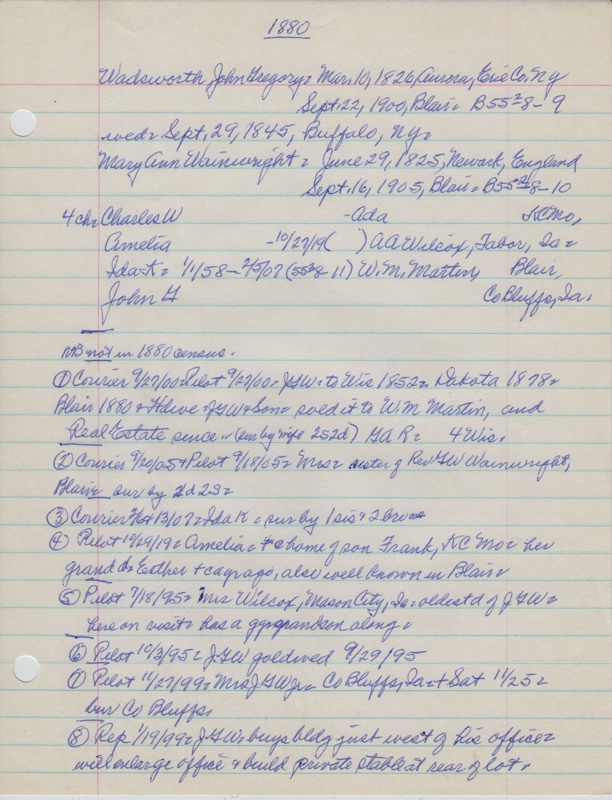 1880
Wadsworth, John Gregory = Mar. 10, 1826, Aurora, Erie Co, Ny
Sept. 22, 1900, Blair = B55 8-9
wed = Sept. 29, 1845, Buffalo, Ny =
Mary Ann Wainwright = June 29, 1825, Newark, England
Sept. 16, 1905, Blair = B55 8-10
4 ch = Charles W -Ada KC Mo,
Amelia -10/27/19( ) A A Wilcox, Tabor, Ia =
Ida K = 1/1/58 - 2/5/07 (55 8-11) W. M. Martin, Blair,
John G Co Bluffs, Ia.
NB not in 1880 census.
① Courier 9/27/00 = Pilot 9/27/00 = JGW = to Wis 1852 = Dakota 1878 =
Blair 1880 + Hdwe = JGW + Son = sold it to W M Martin, and
Real Estate since = (sur by wife 2s2d) GAR = 4 Wis.
② Courier 9/20/05 + Pilot 9/18/05 = Mrs = sister of Rev GW Wainwright,
Blair = sur by 2d 2s =
③ Courier 2/13/07 = Ida K = sur by 1 sis + 2 bro =
④ Pilot 10/29/19 = Amelia = home of son Frank, KC Mo = her
grand da Esther + ca yr ago, also well known in Blair =
⑤ Pilot 7/18/95 = Mrs Wilcox, Mason City, Ia = oldest d of JGW =
here on visit = has a grandson along =
⑥ Pilot 10/3/95 = JGW gold wed 9/29/95
⑦ Pilot 11/27/99 = Mrs JGW jr = Co Bluffs, Ia = + Sat 11/25 =
bur Co Bluffs,
⑧ Rep 1/19/99 = JGW = buys bldg just west of his office =
will enlarge office & build private stable at rear of lot.